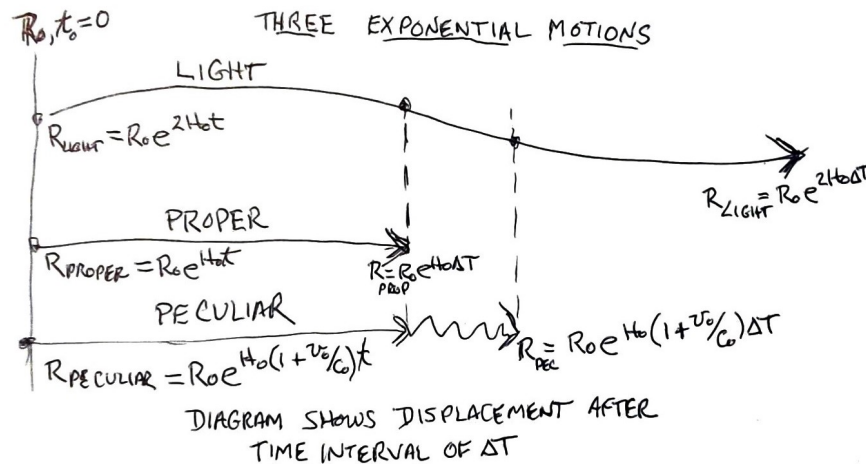 R₀, t₀=0
THREE EXPONENTIAL MOTIONS
LIGHT
R_LIGHT = R₀e^2H₀t
R_LIGHT = R₀e^2H₀ΔT
PROPER
R_PROPER = R₀e^H₀t
R_PROP = R₀e^H₀ΔT
PECULIAR
R_PECULIAR = R₀e^H₀(1+v₀/c₀)t
R_PEC = R₀e^H₀(1+v₀/c₀)ΔT
DIAGRAM SHOWS DISPLACEMENT AFTER
TIME INTERVAL OF ΔT